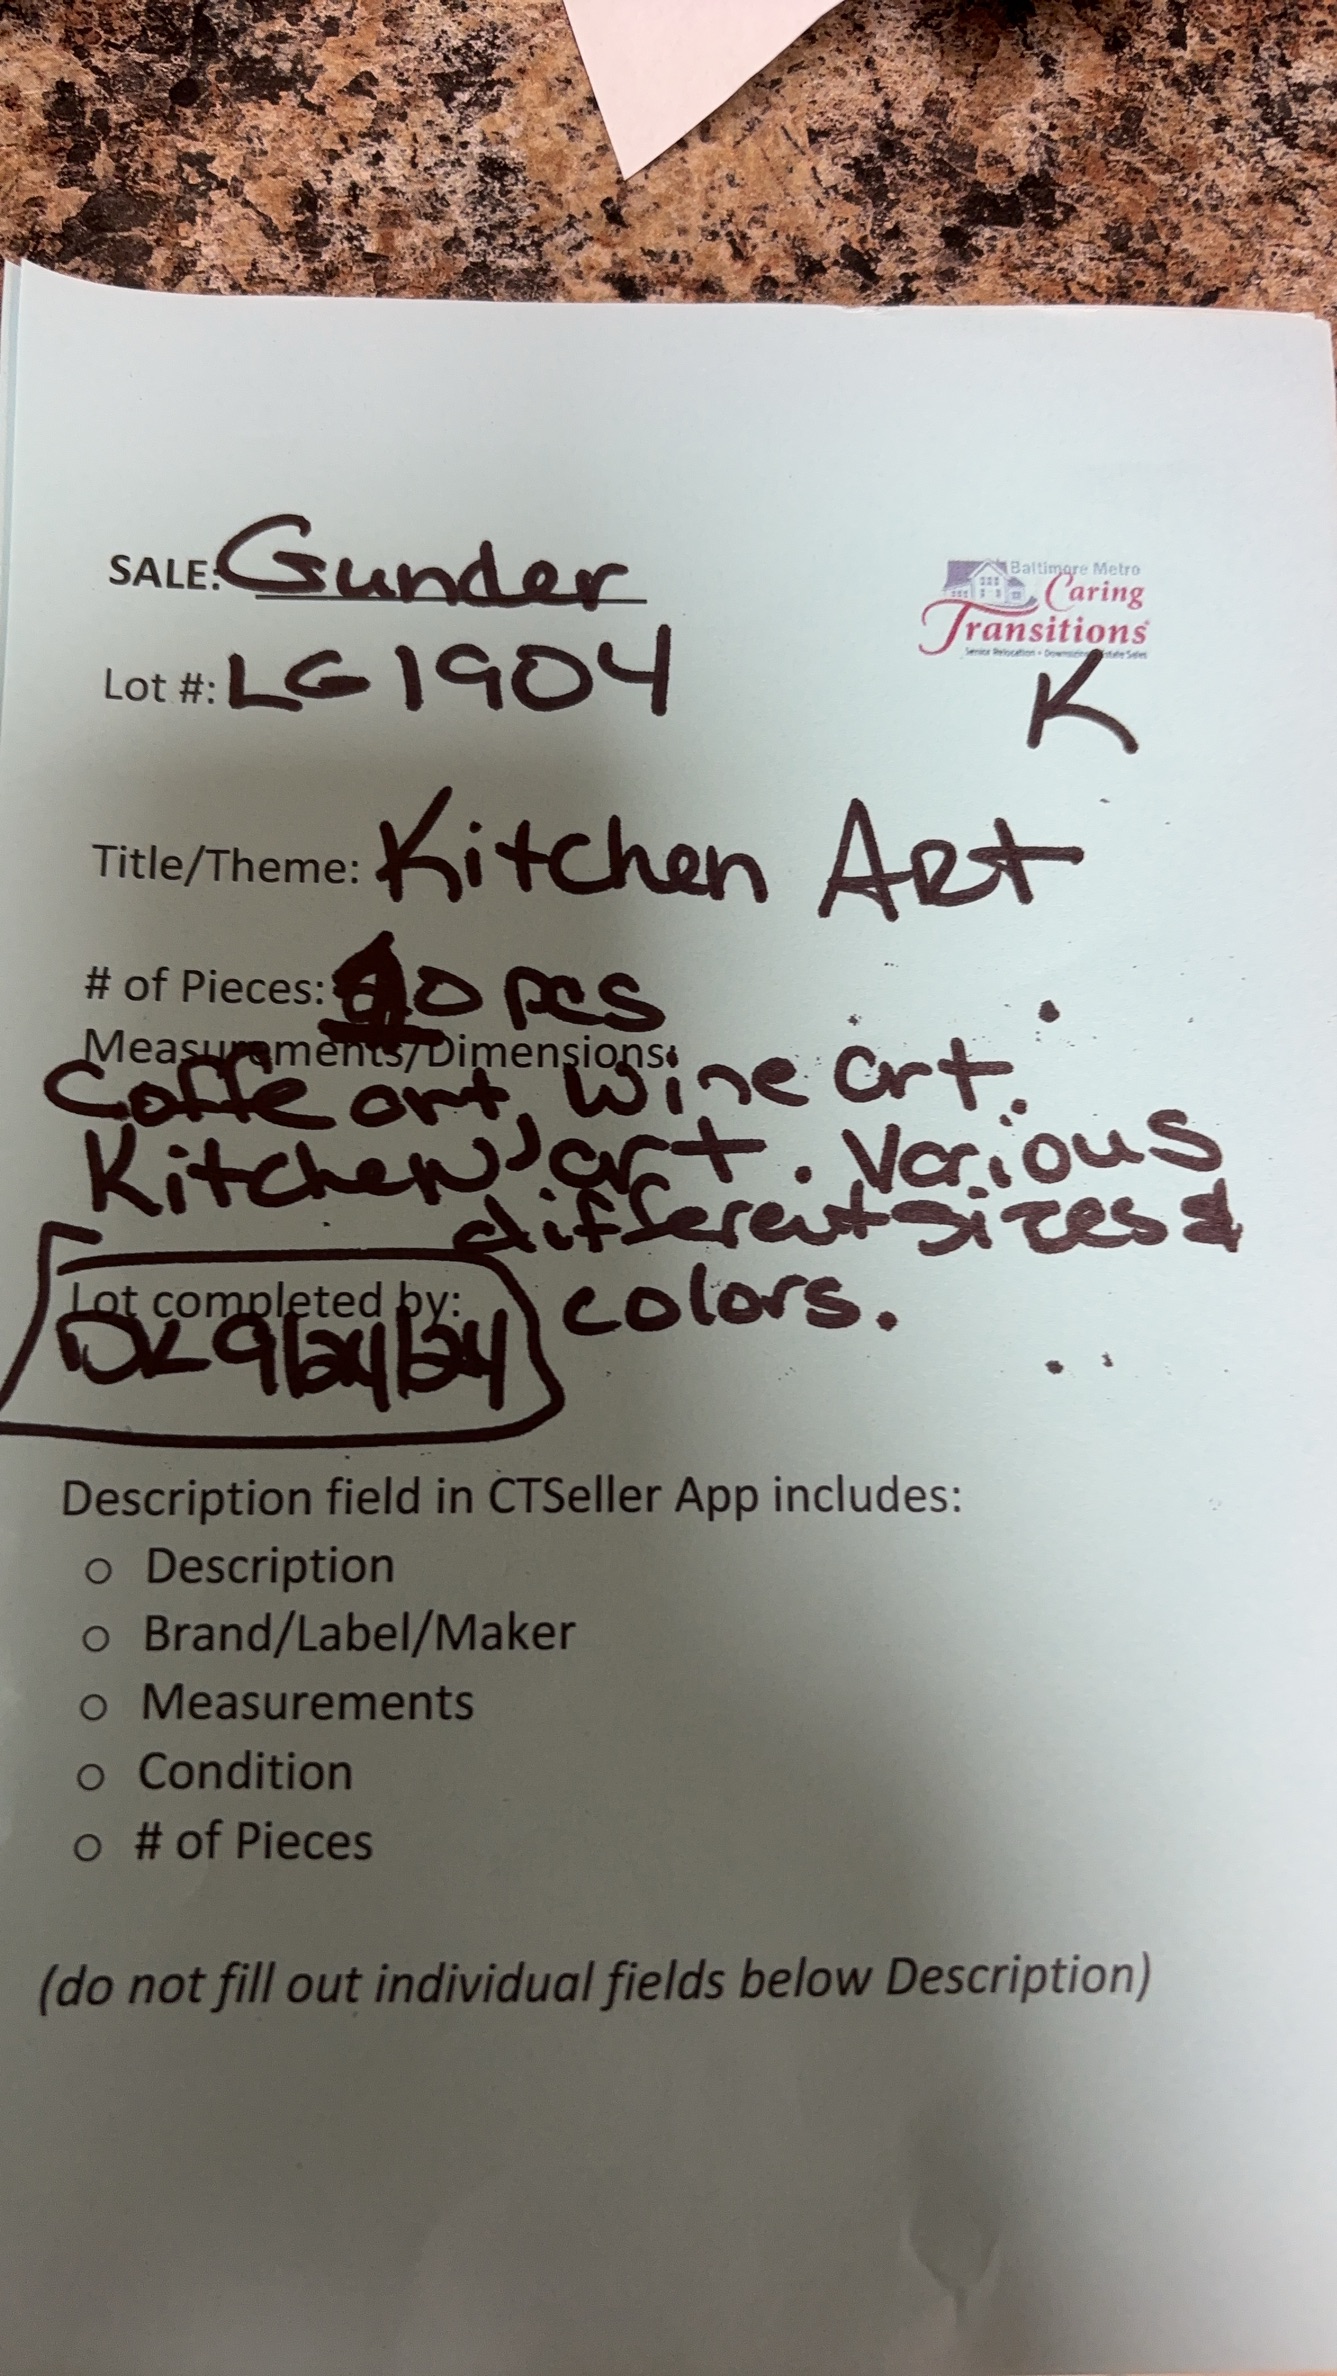 SALE: Gunder
Baltimore Metro
Caring
Transitions
Senior Relocation • Downsizing Estate Sales
Lot #: LG 1904
K
Title/Theme: Kitchen ART
# of Pieces: 10 pcs
Measurements/Dimensions:
Coffe art, Wine art.
Kitchen art. Various
different sizes &
colors.
Lot completed by:
DK 9/24/24
Description field in CTSeller App includes:
o Description
o Brand/Label/Maker
o Measurements
o Condition
o # of Pieces
(do not fill out individual fields below Description)